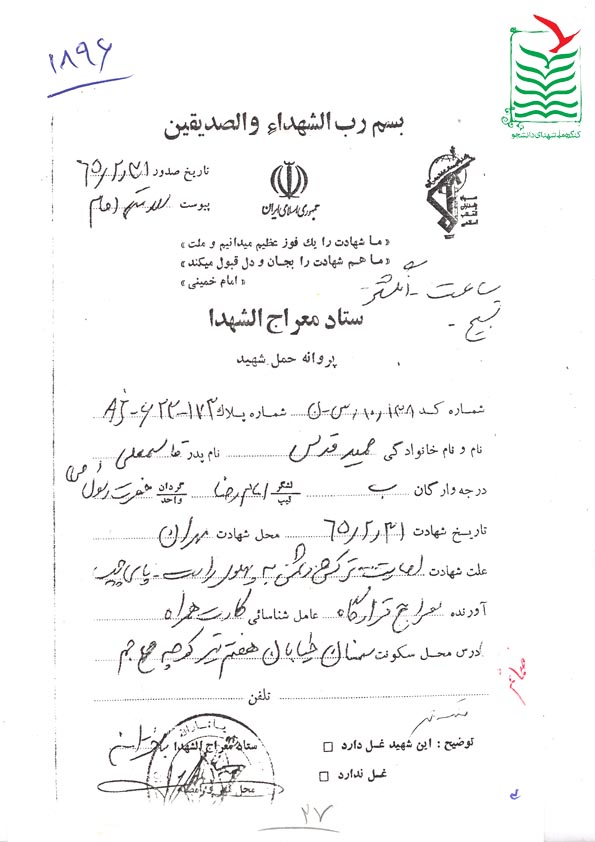 ۱۸۹۶
کنگره ملی شهدای دانشجو
بسم رب الشهداء والصدیقین
تاریخ صدور ۶۵/۲/۳۱
پیوست
جمهوری اسلامی ایران
« ما شهادت را یك فوز عظیم میدانیم و ملت »
« ما هم شهادت را بجان و دل قبول میکند »
« امام خمینی »
ساعت - انگشتر -
تسبیح -
ستاد معراج الشهدا
پروانه حمل شهید
شماره کد ۱۳۸/۱۰/س-ن شماره پلاك ۱۷۳-۶۲۳-AJ
نام و نام خانوادگی حمید قدس نام پدر قاسمعلی
درجه وارگان ب لشگر تیپ امام رضا گردان واحد حضرت رسول
تاریخ شهادت ۶۵/۲/۳۱ محل شهادت مهران
علت شهادت اصابت ترکش دشمن به پهلوی راست - پای چپ
آورنده معراج قرارگاه عامل شناسائی کارت همراه
آدرس محل سکونت سمنان خیابان هفتم تیر کوچه
تلفن
توضیح : این شهید غسل دارد □
غسل ندارد □
ستاد معراج الشهدا باختران
محل
۲۷